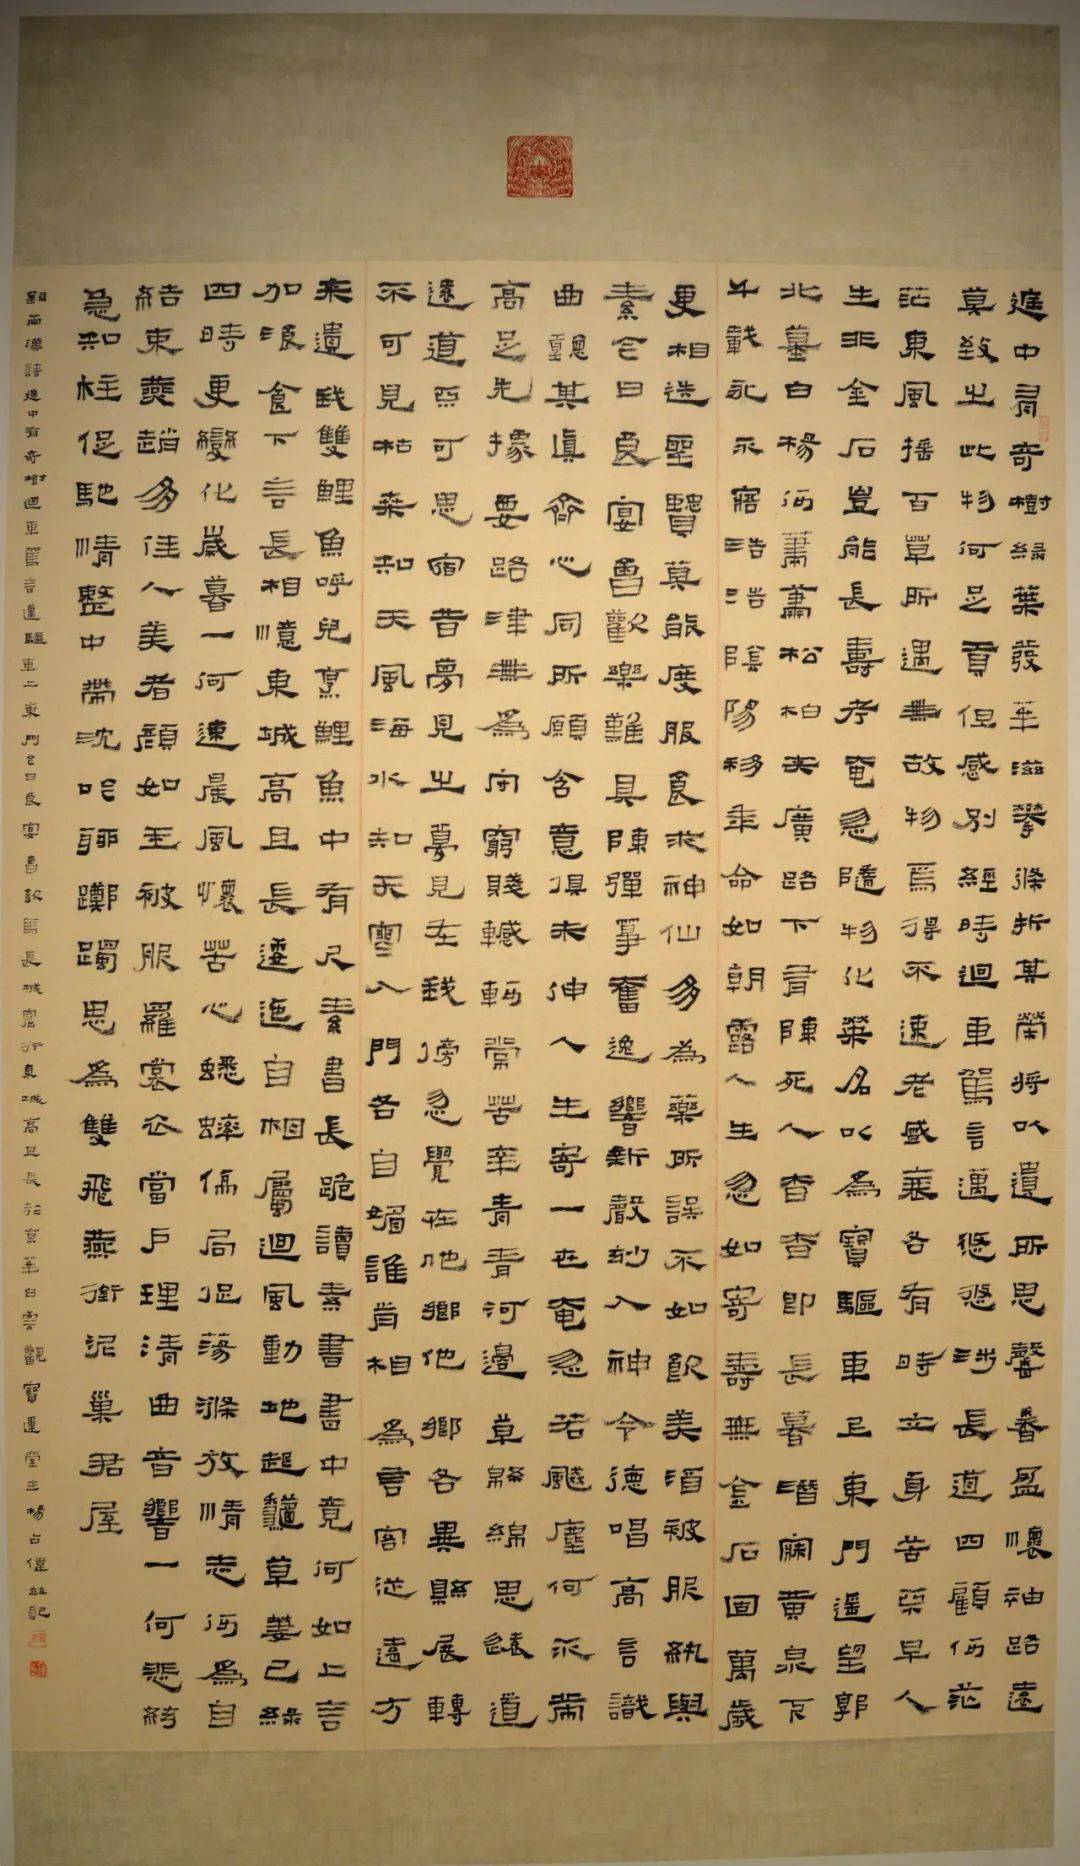 庭中有奇樹綠葉發華滋攀條折其榮將以遺所思馨香盈懷袖路遠
莫致之此物何足貢但感別經時迴車駕言邁悠悠涉長道四顧何茫
茫東風搖百草所遇無故物焉得不速老盛衰各有時立身苦不早人
生非金石豈能長壽考奄忽隨物化榮名以為寶驅車上東門遙望郭
北墓白楊何蕭蕭松柏夾廣路下有陳死人杳杳即長暮潛寐黃泉下
千載永不寤浩浩陰陽移年命如朝露人生忽如寄壽無金石固萬歲
更相送聖賢莫能度服食求神仙多為藥所誤不如飲美酒被服紈與
素今日良宴會歡樂難具陳彈箏奮逸響新聲妙入神令德唱高言識
曲聽其真齊心同所願含意俱未伸人生寄一世奄忽若飈塵何不策
高足先據要路津無為守窮賤轗軻常苦辛青青河邊草綿綿思遠道
遠道不可思宿昔夢見之夢見在我傍忽覺在他鄉他鄉各異縣展轉
不可見枯桑知天風海水知天寒入門各自媚誰肯相為言客從遠方
來遺我雙鯉魚呼兒烹鯉魚中有尺素書長跪讀素書書中竟何如上言
加飡食下言長相憶東城高且長逶迤自相屬迴風動地起秋草萋已綠
四時更變化歲暮一何速晨風懷苦心蟋蟀傷局促蕩滌放情志何為自
結束燕趙多佳人美者顏如玉被服羅裳衣當戶理清曲音響一何悲絃
急知柱促馳情整中帶沈吟聊躑躅思為雙飛燕銜泥巢君屋
錄兩漢詩庭中有奇樹迴車駕言邁驅車上東門今日良宴會飲馬長城窟行東城高且長於京華白雲觀寶蓮堂主楊占偉並記